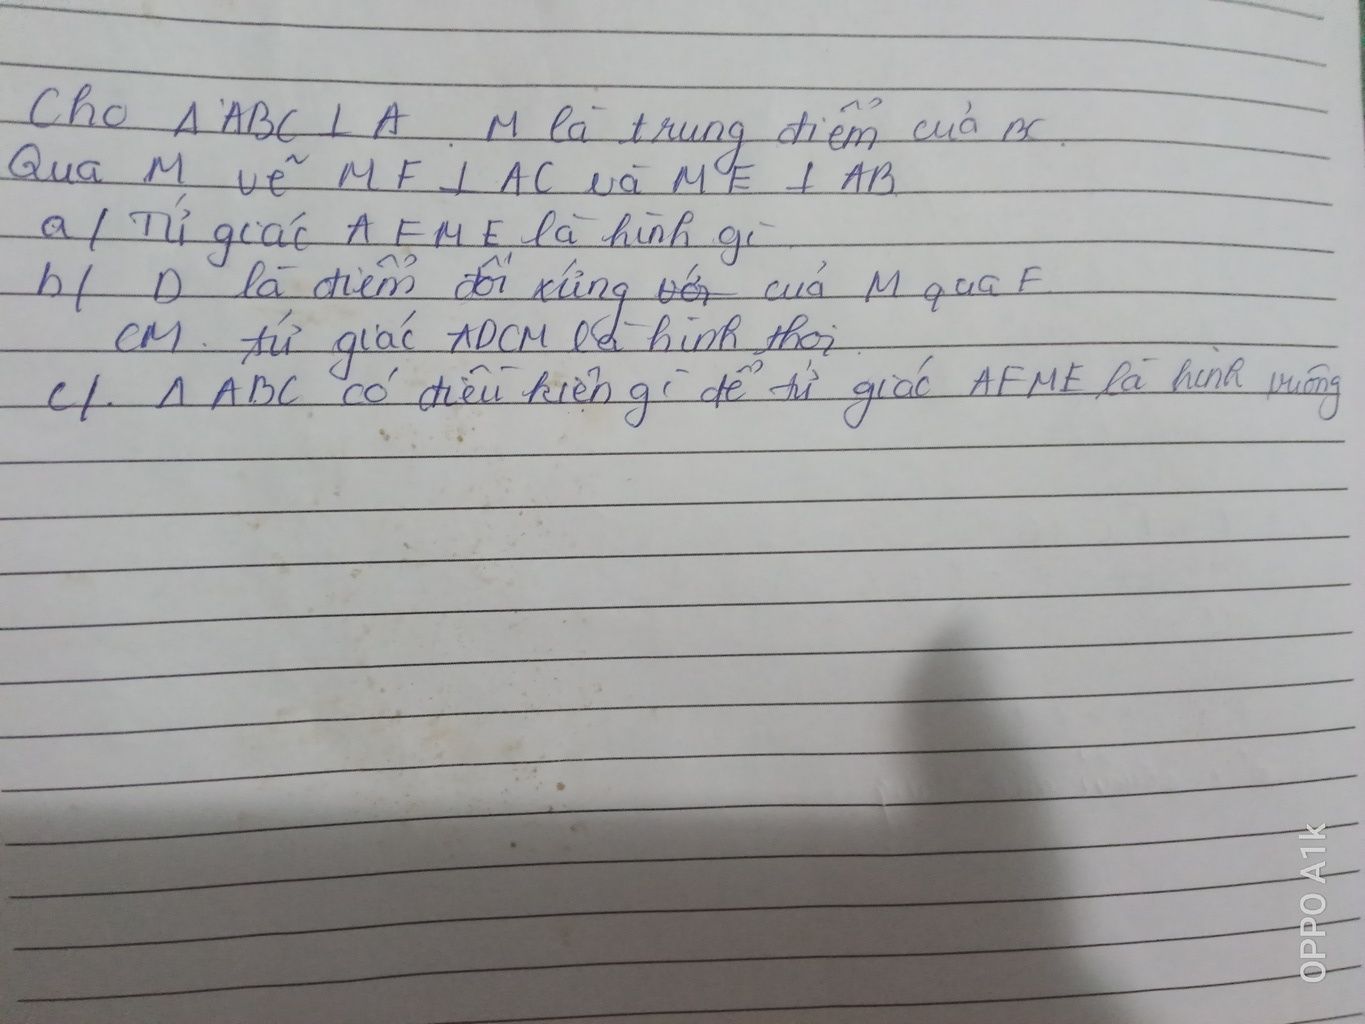 Cho Δ ABC ⊥ A. M là trung điểm của BC.
Qua M vẽ MF ⊥ AC và ME ⊥ AB
a/ Tứ giác AFME là hình gì
b/ D là điểm đối xứng với của M qua F
CM. tứ giác ADCM là hình thoi.
c/. Δ ABC có điều kiện gì để tứ giác AFME là hình vuông
OPPO A1k